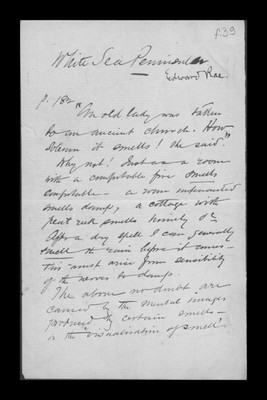 p.39
White Sea Peninsula
Edward Rae
p. 182 "An old lady was taken
to an ancient church. How
solemn it smells! she said."
Why not! Just as a room
with a comfortable fire smells
comfortable – a room unfurnished
smells damp, a cottage with
peat reek smells homely &c
After a dry spell I can generally
smell the rain before it comes –
This must arise from sensibility
of the nerves to damp.
The above no doubt are
caused by the mental images
produced by certain smells –
or the visualisation of smell